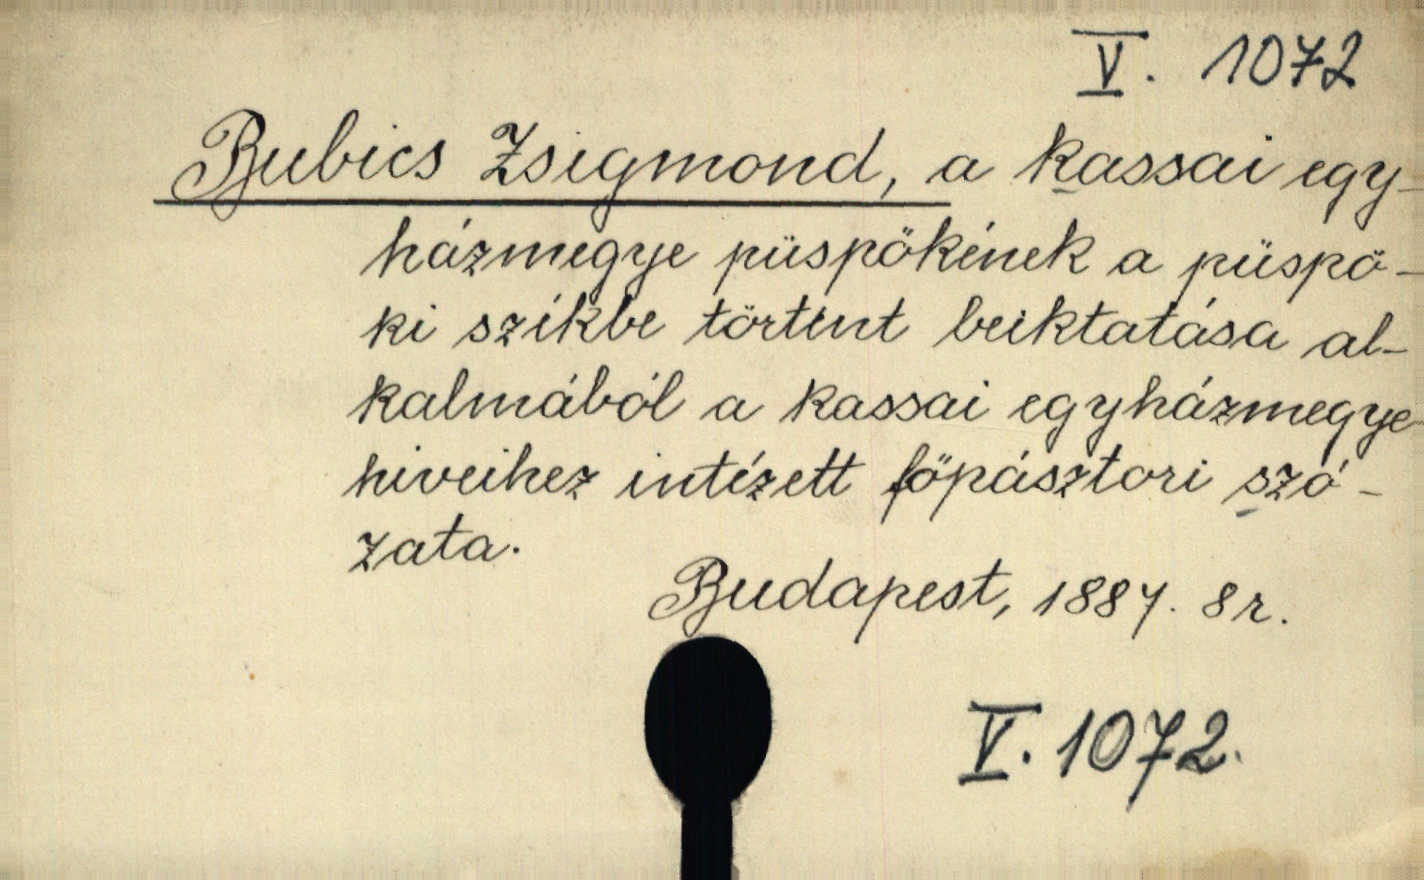 V. 1072
Bubics Zsigmond, a kassai egy-
házmegye püspökének a püspö-
ki székbe történt beiktatása al-
kalmából a kassai egyházmegye
hiveihez intézett főpásztori szó-
zata.
Budapest, 1887. 8r.
V. 1072.